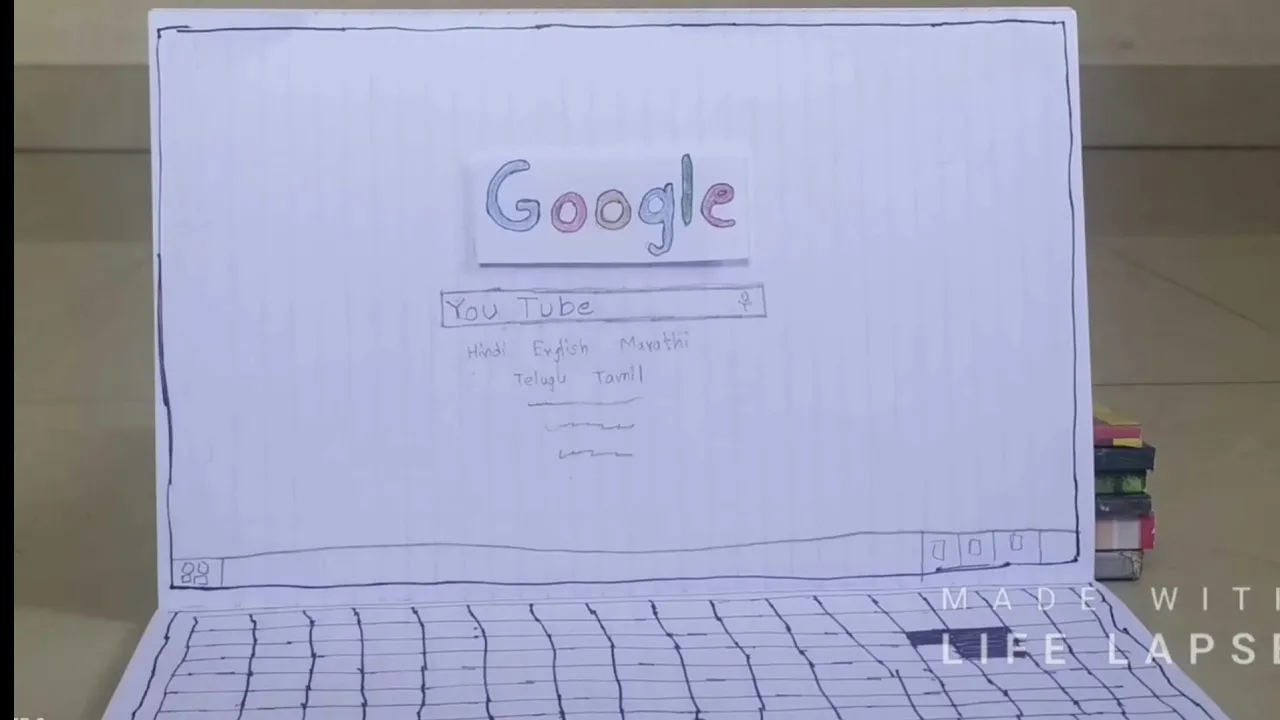 Google
You Tube
Hindi English Marathi
Telugu Tamil
MADE WIT
LIFE LAPSE